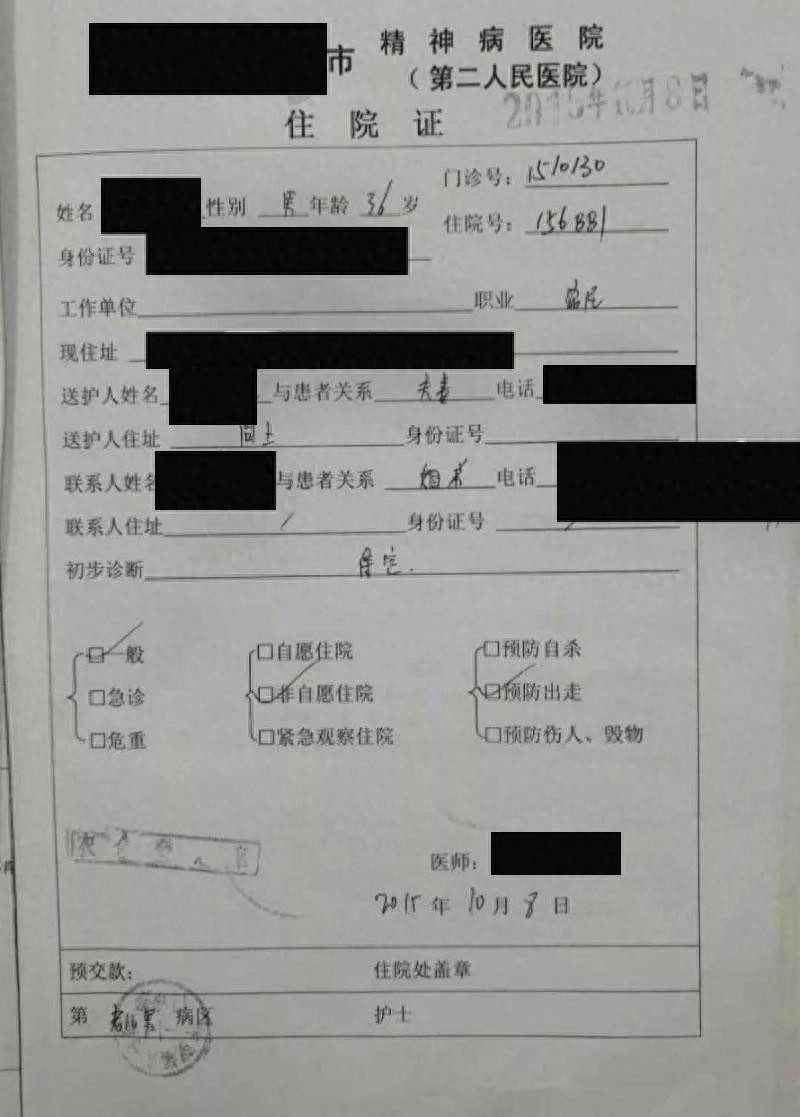 市 精神病医院
（第二人民医院）
2015年10月8日
住院证
门诊号：1510130
姓名 性别 男 年龄 36 岁
住院号：156881
身份证号
工作单位 职业 居民
现住址
送护人姓名 与患者关系 夫妻 电话
送护人住址 同上 身份证号
联系人姓名 与患者关系 电话
联系人住址 / 身份证号 /
初步诊断
□一般 □自愿住院 □预防自杀
□急诊 □非自愿住院 □预防出走
□危重 □紧急观察住院 □预防伤人、毁物
医师：
2015年10月8日
预交款： 住院处盖章
第 病区 护士